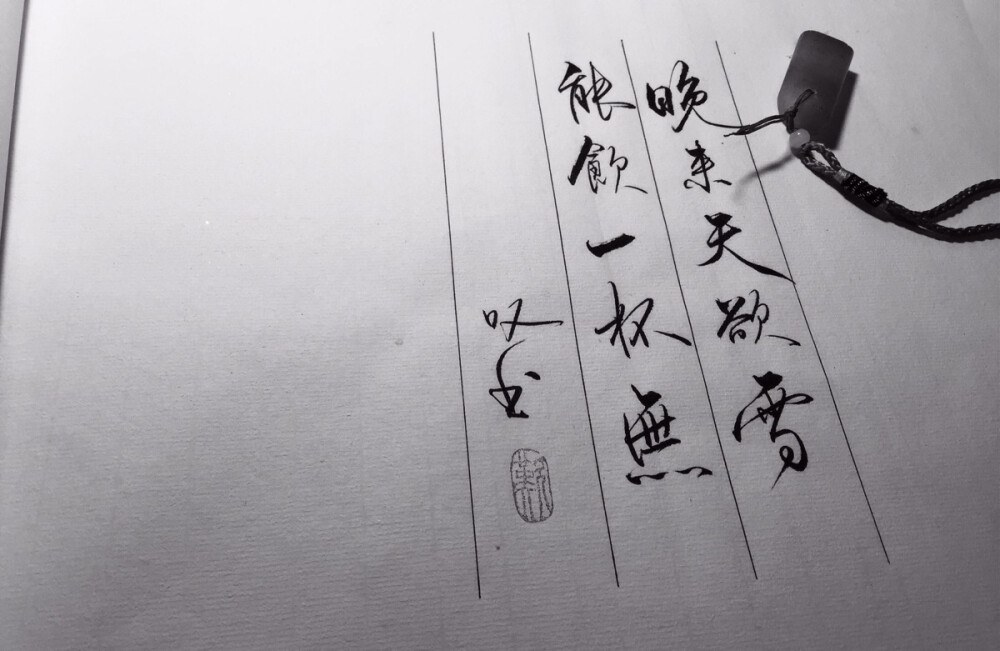 晚来天欲雪
能飲一杯無
叹书